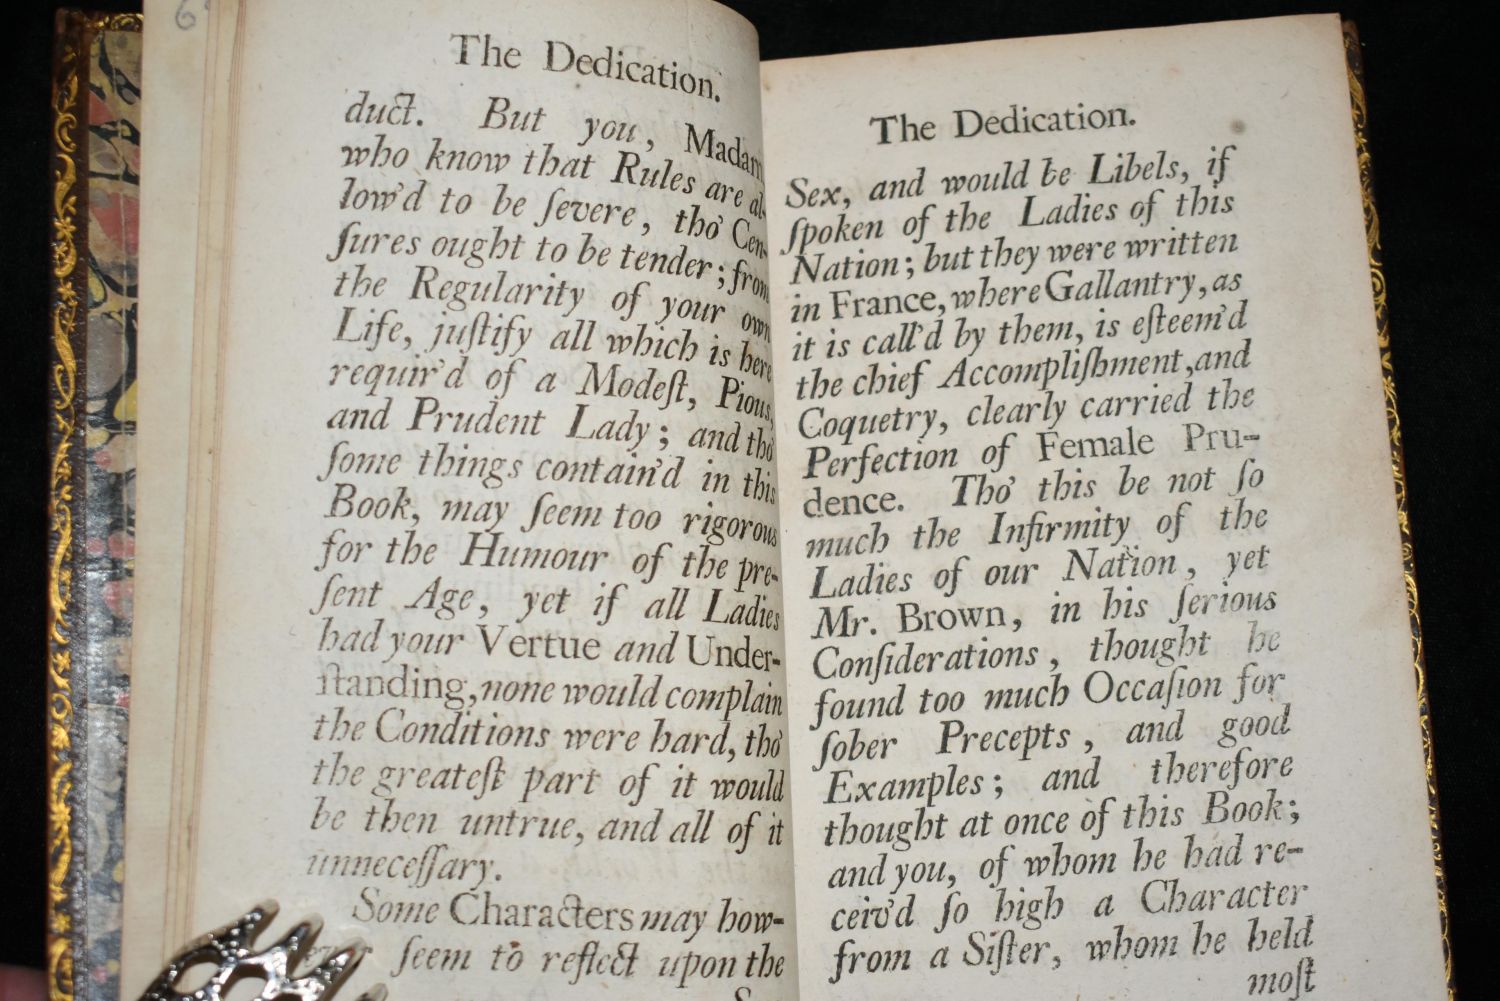 The Dedication.
duct. But you, Madam,
who know that Rules are al-
low'd to be ſevere, tho' Cen-
ſures ought to be tender; from
the Regularity of your own
Life, juſtify all which is here
requir'd of a Modeſt, Pious,
and Prudent Lady; and tho'
ſome things contain'd in this
Book, may ſeem too rigorous
for the Humour of the pre-
ſent Age, yet if all Ladies
had your Vertue and Under-
ſtanding, none would complain
the Conditions were hard, tho'
the greateſt part of it would
be then untrue, and all of it
unneceſſary.
Some Characters may how-
ever ſeem to reflect upon the
The Dedication.
Sex, and would be Libels, if
ſpoken of the Ladies of this
Nation; but they were written
in France, where Gallantry, as
it is call'd by them, is eſteem'd
the chief Accompliſhment, and
Coquetry, clearly carried the
Perfection of Female Pru-
dence. Tho' this be not ſo
much the Infirmity of the
Ladies of our Nation, yet
Mr. Brown, in his ſerious
Conſiderations, thought he
found too much Occaſion for
ſober Precepts, and good
Examples; and therefore
thought at once of this Book;
and you, of whom he had re-
ceiv'd ſo high a Character
from a Siſter, whom he held
moſt